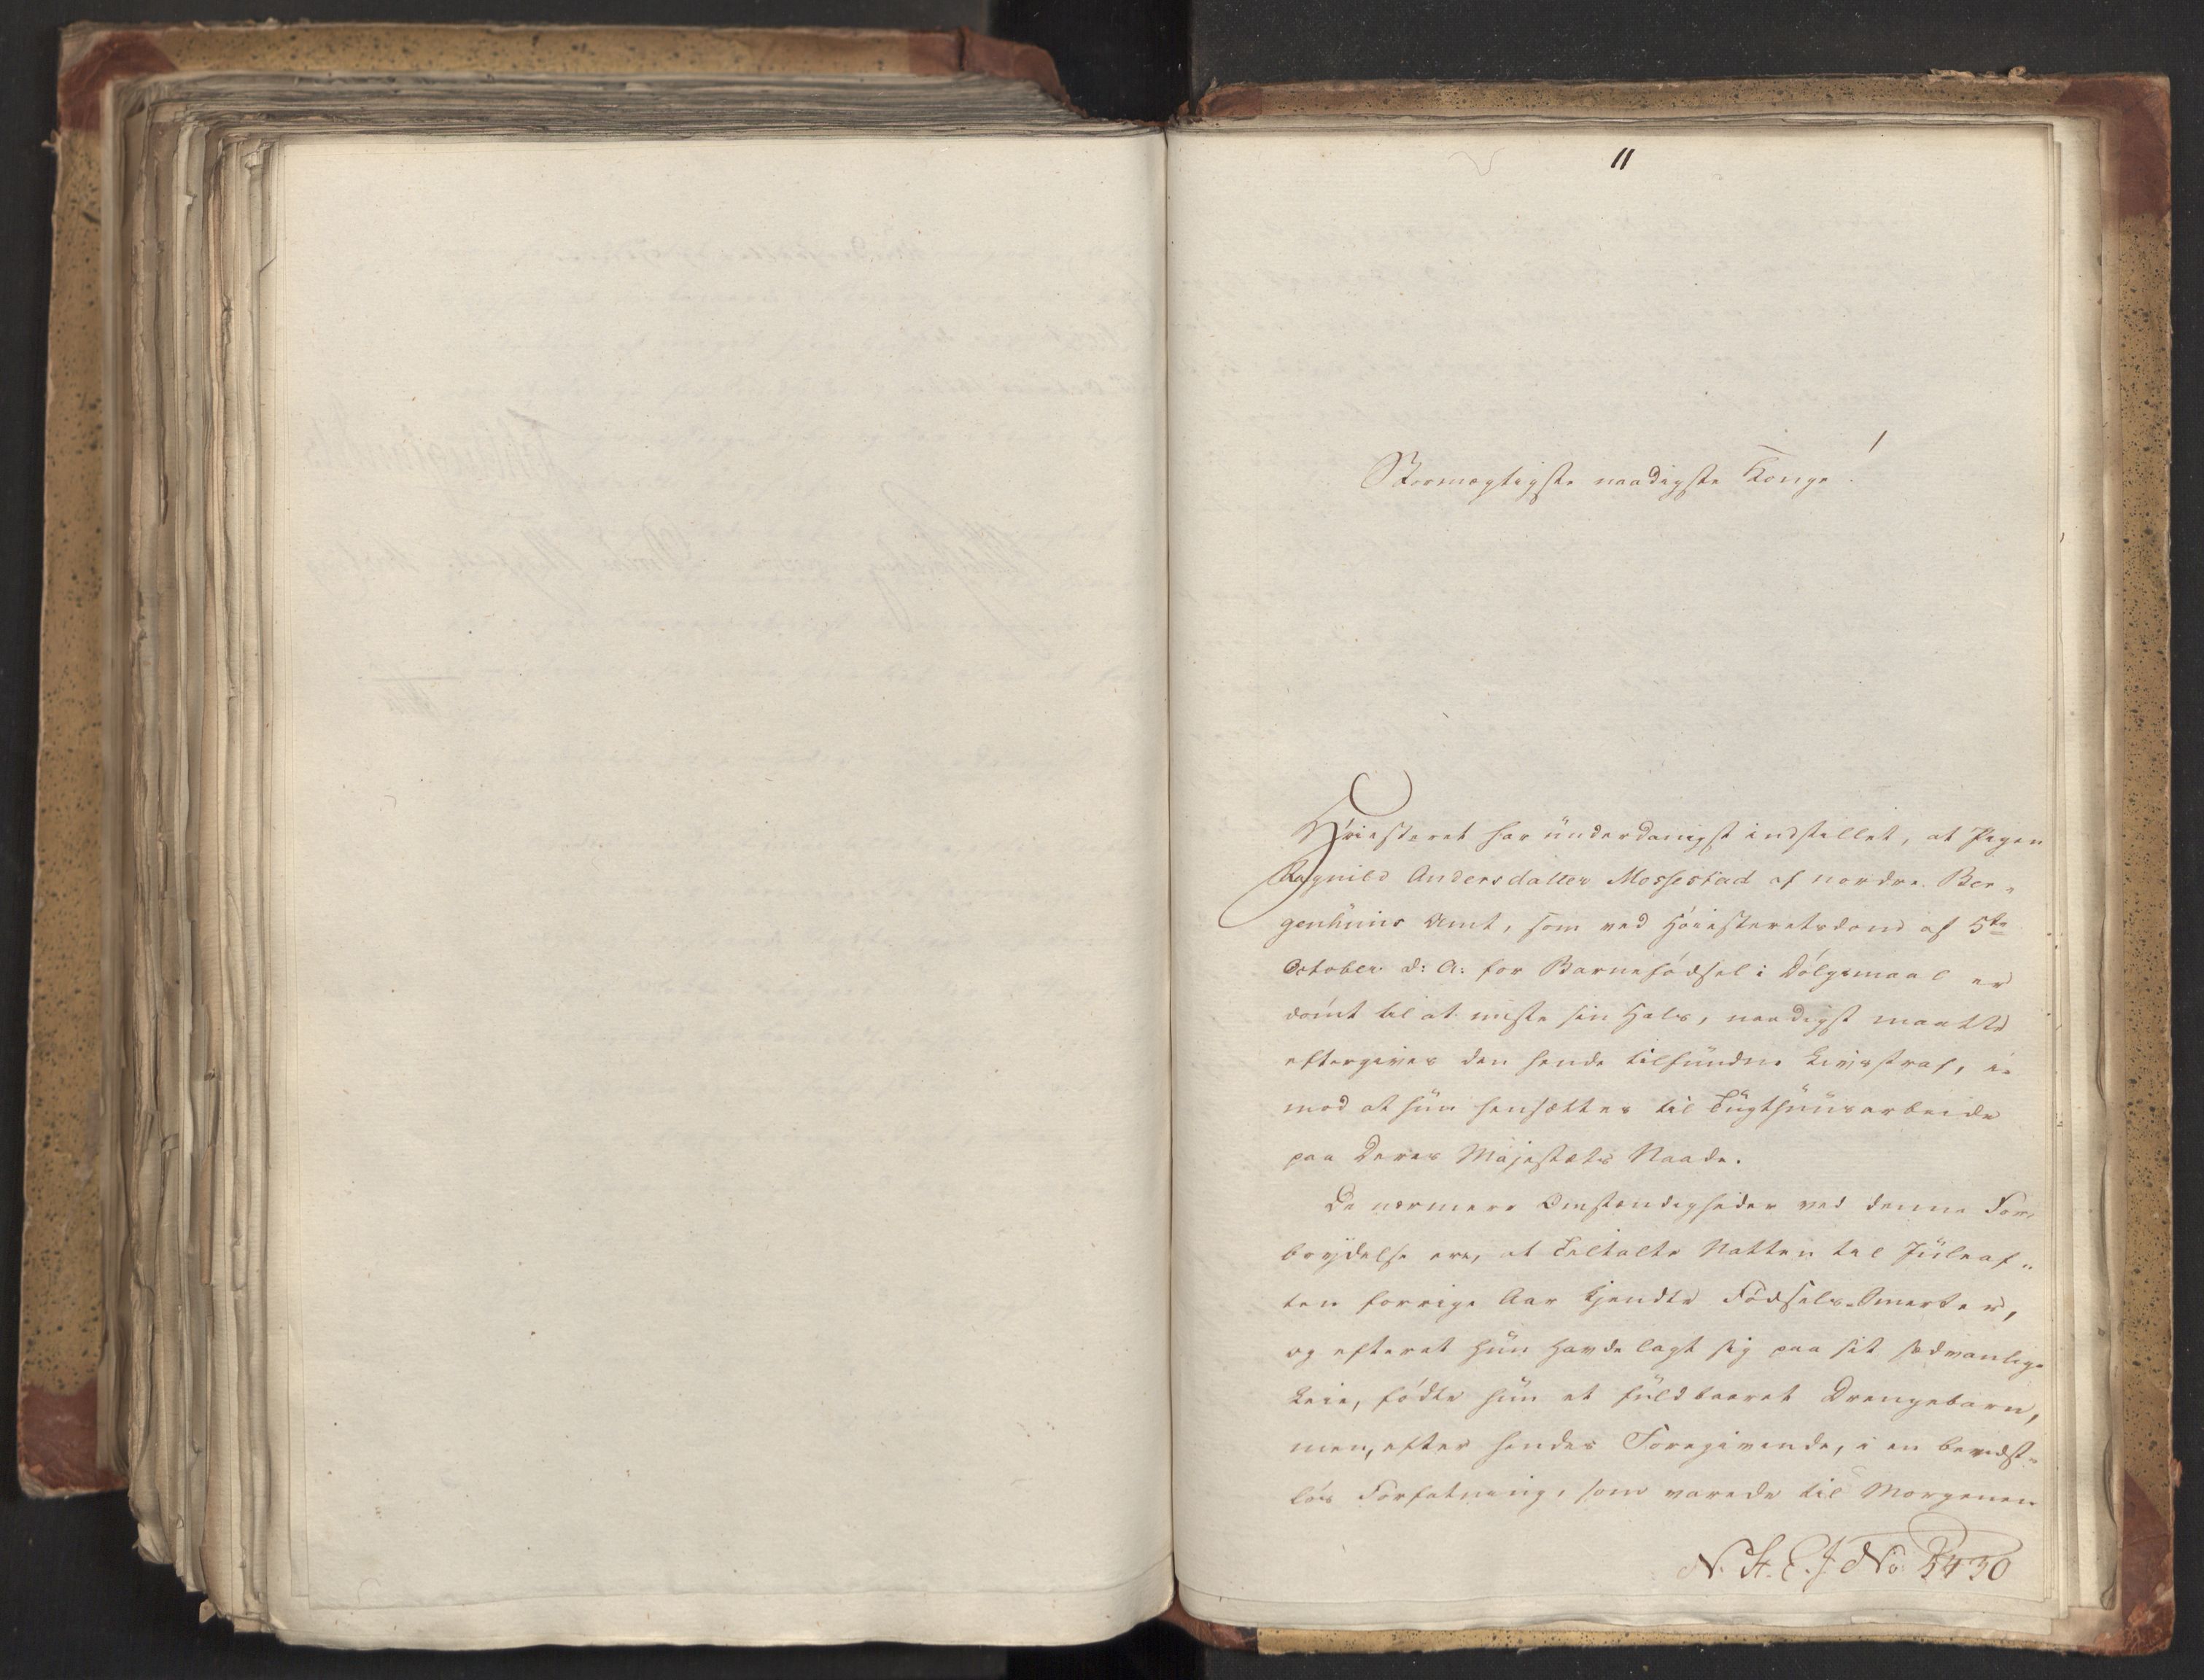 11
Stormægtigste naadigste Konge!
Høiesteret har ünderdanigst indstillet, at Pigen
Ragnild Andersdatter Mossestad af nordre Ber„
genhüüs Amt, som ved Høiesteretsdom af 5te
October d: A: for Barnefødsel i Dølgsmaal er
dømt til at miste sin Hals, naadigst maatte
eftergives den hende tilfündne Livsstraf, i„
mod at hün hensættes til Tügthüüsarbeide
paa Deres Majestæts Naade.
De nærmere Omstændigheder ved denne For„
brydelse ere, at Tiltalte Natten til Jüleaf„
ten forrige Aar kjendte Fødsels-Smerter,
og efterat hün havde lagt sig paa sit sædvanlige
Leie, fødte hün et füldbaaret Drengebarn,
men, efter hendes Foregivende, i en bevidst„
løs Forfatning, som varede til Morgenen
N. St. E. J. No. 2430